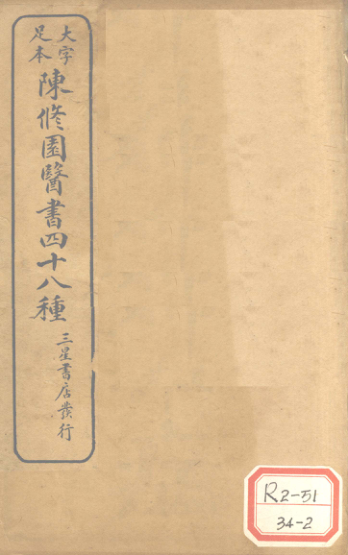 大字
足本
陳修園醫書四十八種
三星書店發行
R2-51
34-2